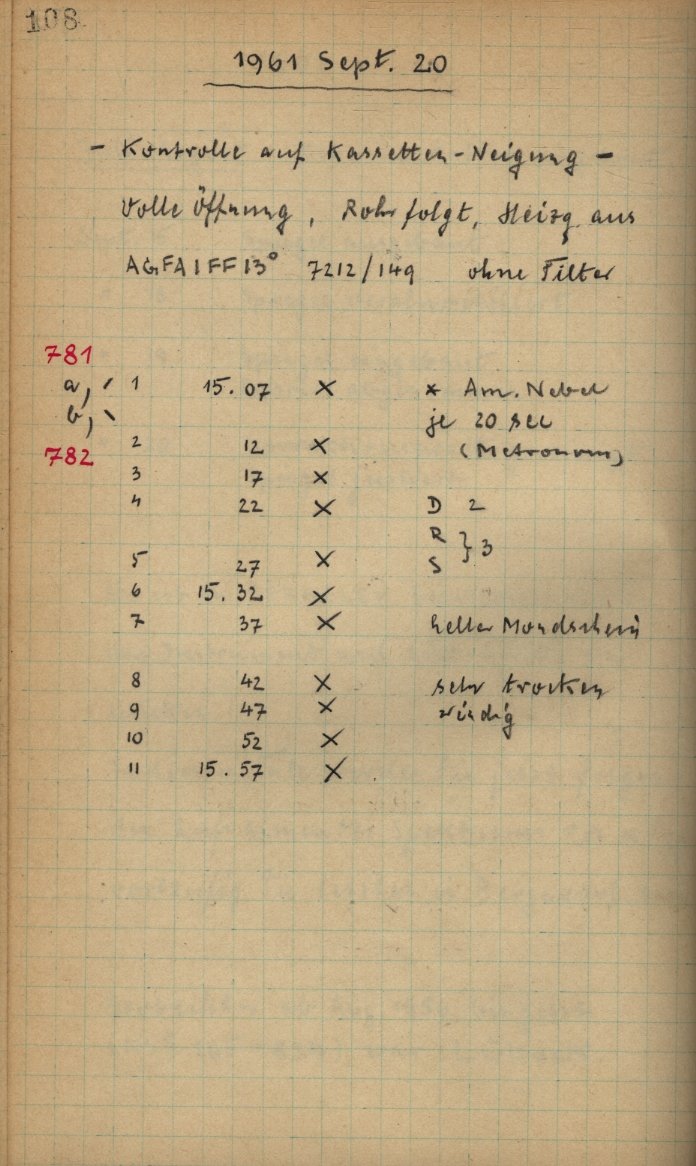 108
1961 Sept. 20
- Kontrolle auf Kassetten-Neigung -
Volle Öffnung, Rohr folgt, Heizg. aus
AGFA IFF 13° 7212/149 ohne Filter
781
a, ´ 1 15.07 × * Am. Nebel
b, ` je 20 sec
782 2 12 × (Metronom)
3 17 ×
4 22 × D 2
R } 3
5 27 × S
6 15.32 ×
7 37 × heller Mondschein
8 42 × sehr trocken
9 47 × windig
10 52 ×
11 15.57 ×